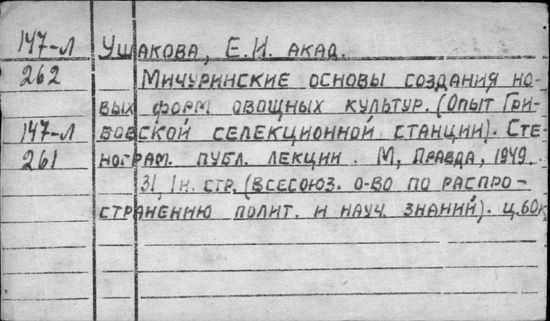 147-Л УШАКОВА, Е.И. АКАД.
262 МИЧУРИНСКИЕ ОСНОВЫ СОЗДАНИЯ НО-
ВЫХ ФОРМ ОВОЩНЫХ КУЛЬТУР. (ОПЫТ ГРИ-
147-Л БОВСКОЙ СЕЛЕКЦИОННОЙ СТАНЦИИ). СТЕ-
261 НОГРАМ. ПУБЛ. ЛЕКЦИИ. М, ПРАВДА, 1949.
31, 1 Н. СТР. (ВСЕСОЮЗ. О-ВО ПО РАСПРО-
СТРАНЕНИЮ ПОЛИТ. И НАУЧ. ЗНАНИЙ). Ц. 60К